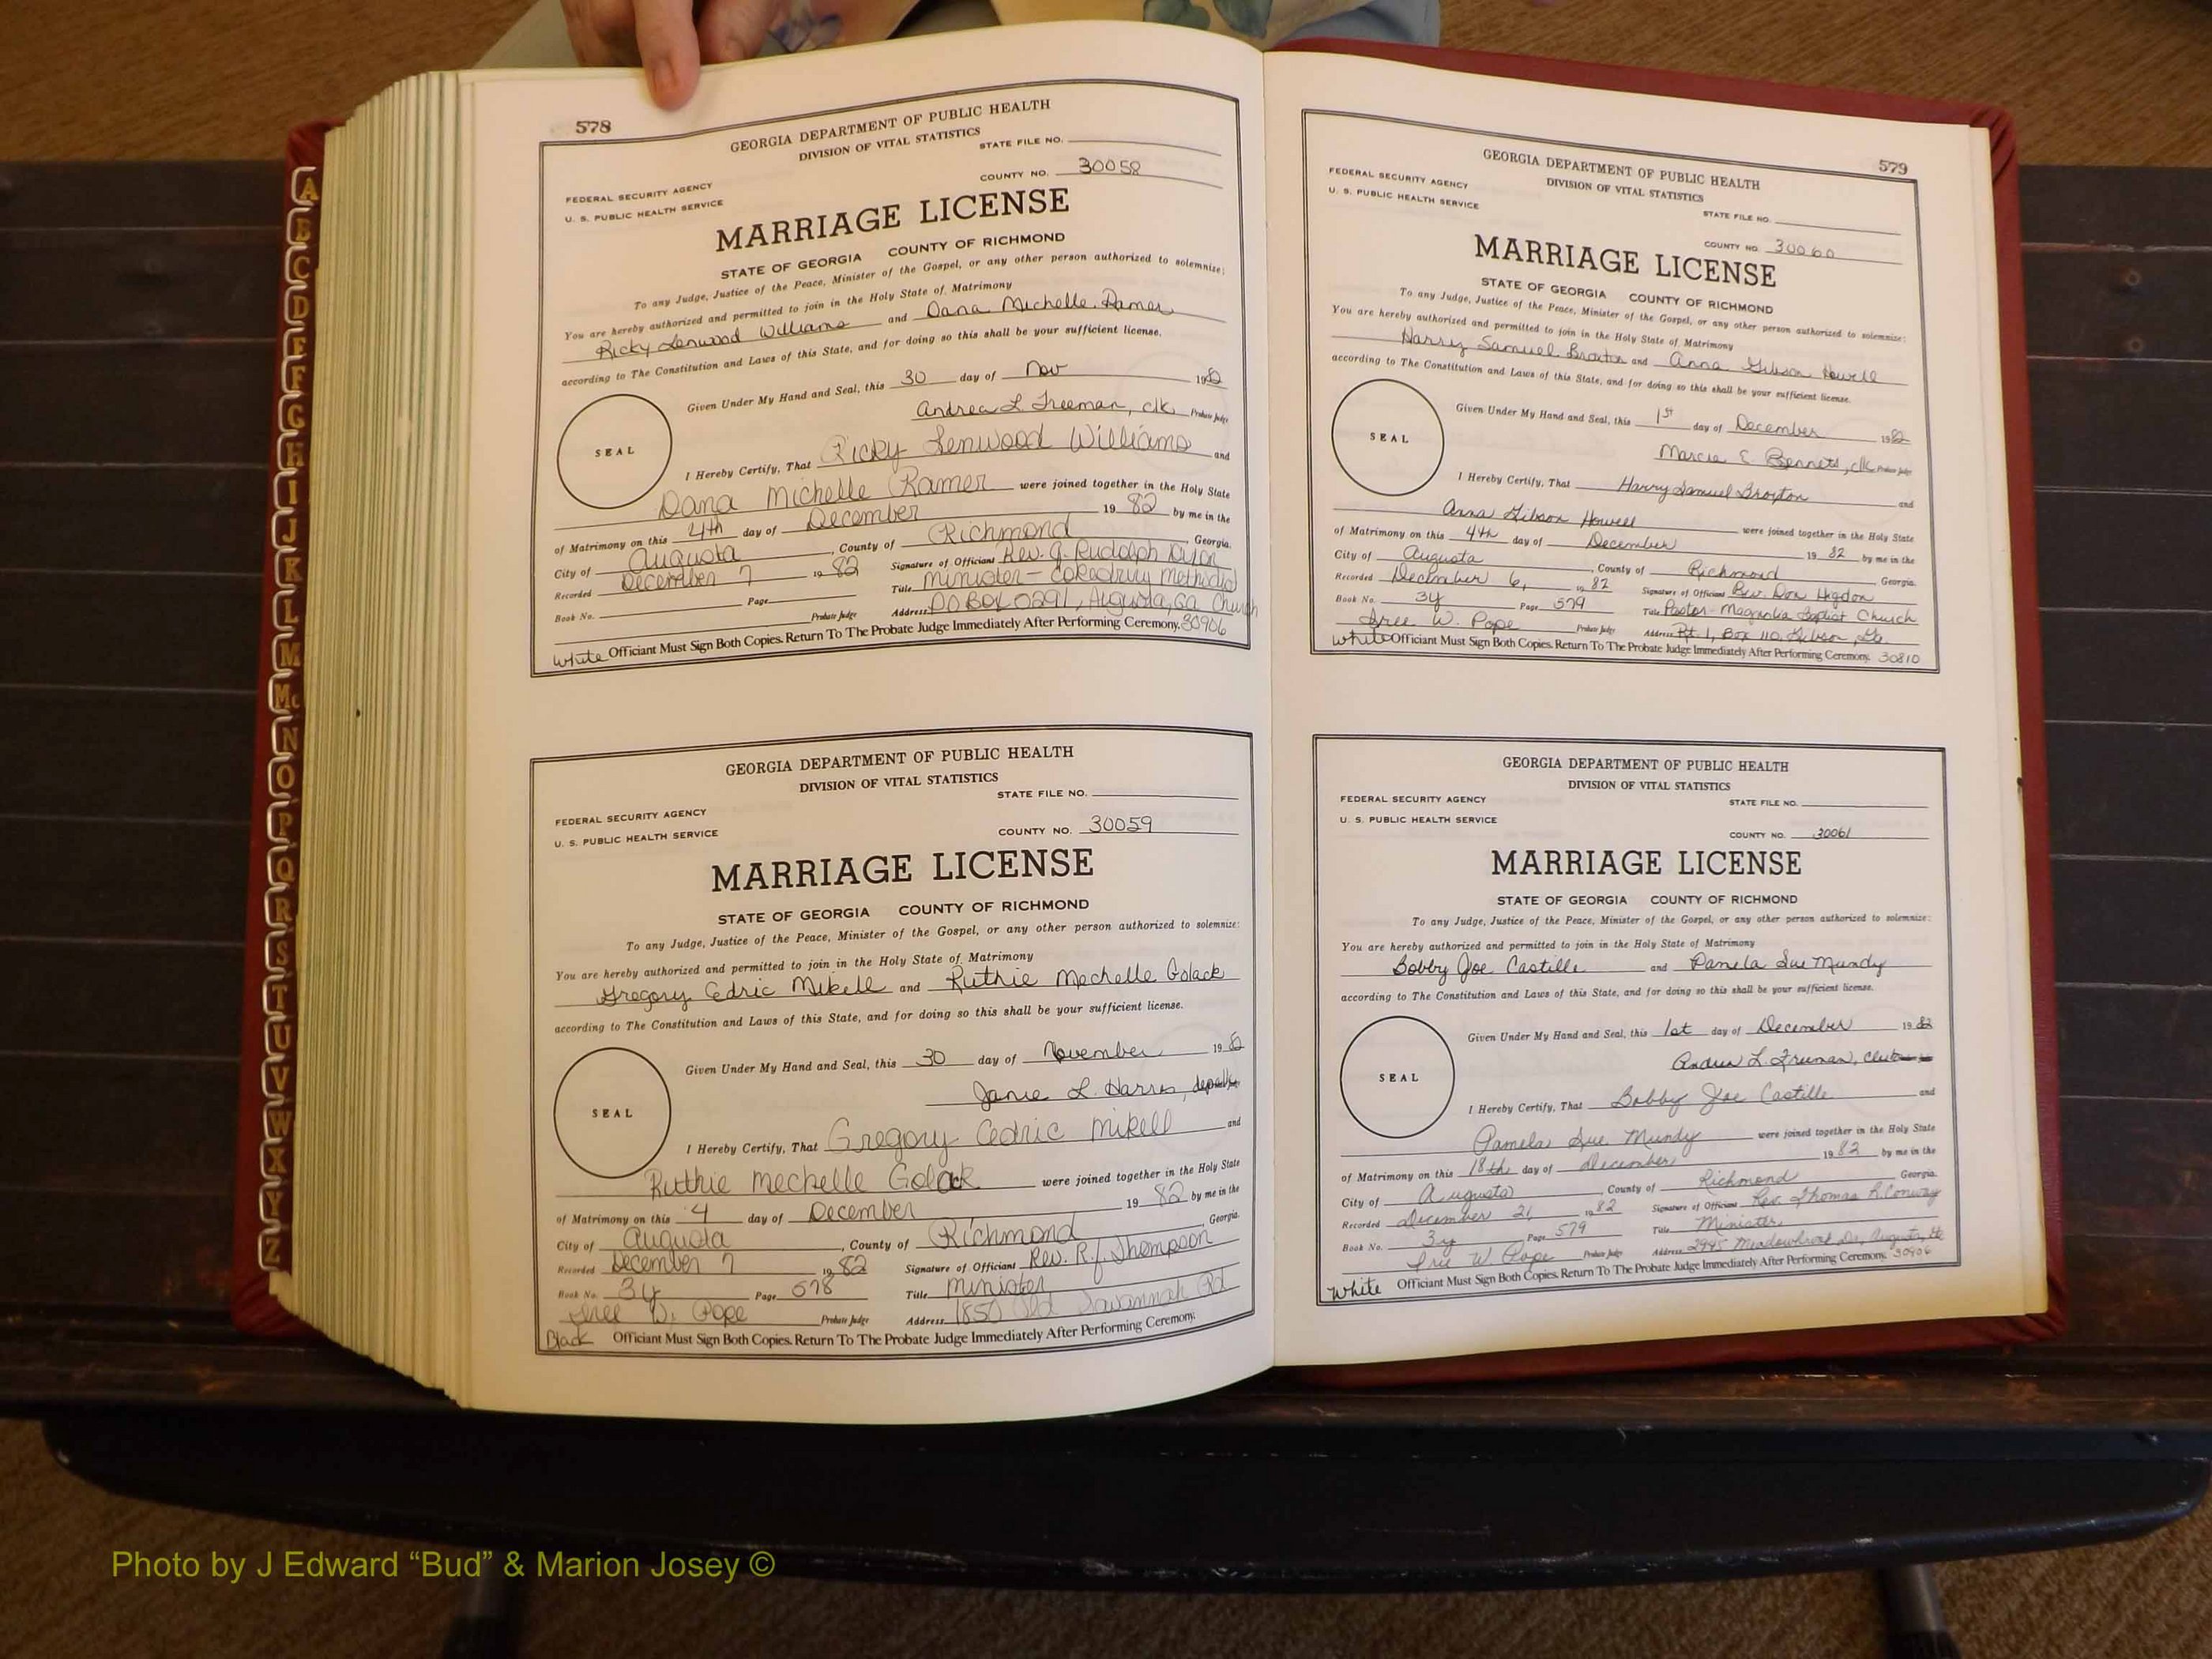 A
B
C
D
E
F
G
H
I
J
K
L
M
Mc
N
O
P
Q
R
S
T
U
V
W
X
Y
Z
578
GEORGIA DEPARTMENT OF PUBLIC HEALTH
DIVISION OF VITAL STATISTICS
STATE FILE NO.
FEDERAL SECURITY AGENCY
U. S. PUBLIC HEALTH SERVICE
COUNTY NO. 30058
MARRIAGE LICENSE
STATE OF GEORGIA COUNTY OF RICHMOND
To any Judge, Justice of the Peace, Minister of the Gospel, or any other person authorized to solemnize:
You are hereby authorized and permitted to join in the Holy State of Matrimony
Ricky Lenwood Williams and Dana Michelle Ramer
according to The Constitution and Laws of this State, and for doing so this shall be your sufficient license.
Given Under My Hand and Seal, this 30 day of Nov 1982
Andrea L Freeman, clk Probate Judge
SEAL
I Hereby Certify, That Ricky Lenwood Williams and
Dana Michelle Ramer were joined together in the Holy State
of Matrimony on this 4th day of December 19 82 by me in the
City of Augusta, County of Richmond, Georgia.
Recorded December 7 19 82 Signature of Officiant Rev. G. Rudolph
Book No. Page Title Minister - Methodist
Probate Judge Address PO Box Augusta, Ga Church
White Officiant Must Sign Both Copies. Return To The Probate Judge Immediately After Performing Ceremony. 30906
GEORGIA DEPARTMENT OF PUBLIC HEALTH
DIVISION OF VITAL STATISTICS
STATE FILE NO.
FEDERAL SECURITY AGENCY
U. S. PUBLIC HEALTH SERVICE
COUNTY NO. 30059
MARRIAGE LICENSE
STATE OF GEORGIA COUNTY OF RICHMOND
To any Judge, Justice of the Peace, Minister of the Gospel, or any other person authorized to solemnize:
You are hereby authorized and permitted to join in the Holy State of Matrimony
Gregory Cedric Mikell and Ruthie Mechelle Golack
according to The Constitution and Laws of this State, and for doing so this shall be your sufficient license.
Given Under My Hand and Seal, this 30 day of November 1982
Janie L. Harris,
SEAL
I Hereby Certify, That Gregory Cedric Mikell and
Ruthie Mechelle Golack were joined together in the Holy State
of Matrimony on this 4 day of December 19 82 by me in the
City of Augusta, County of Richmond, Georgia.
Recorded December 7 19 82 Signature of Officiant Rev. R.J. Thompson
Book No. 3y Page 578 Title Minister
W. Pope Probate Judge Address 1850 Old Savannah Rd
Black Officiant Must Sign Both Copies. Return To The Probate Judge Immediately After Performing Ceremony.
579
GEORGIA DEPARTMENT OF PUBLIC HEALTH
DIVISION OF VITAL STATISTICS
FEDERAL SECURITY AGENCY
U. S. PUBLIC HEALTH SERVICE
STATE FILE NO.
COUNTY NO. 30060
MARRIAGE LICENSE
STATE OF GEORGIA COUNTY OF RICHMOND
To any Judge, Justice of the Peace, Minister of the Gospel, or any other person authorized to solemnize:
You are hereby authorized and permitted to join in the Holy State of Matrimony
Harry Samuel Broxton and Anna Gibson Howell
according to The Constitution and Laws of this State, and for doing so this shall be your sufficient license.
Given Under My Hand and Seal, this 1st day of December 1982
Marcia E. Bennett, clk Probate Judge
SEAL
I Hereby Certify, That Harry Samuel Broxton and
Anna Gibson Howell were joined together in the Holy State
of Matrimony on this 4th day of December 19 82 by me in the
City of Augusta, County of Richmond, Georgia.
Recorded December 6, 19 82 Signature of Officiant Rev. Don Higdon
Book No. 3y Page 579 Title Pastor - Magnolia Baptist Church
W. Pope Probate Judge Address Rt. 1, Box 110, Gibson, Ga.
White Officiant Must Sign Both Copies. Return To The Probate Judge Immediately After Performing Ceremony. 30810
GEORGIA DEPARTMENT OF PUBLIC HEALTH
DIVISION OF VITAL STATISTICS
FEDERAL SECURITY AGENCY
STATE FILE NO.
U. S. PUBLIC HEALTH SERVICE
COUNTY NO. 30061
MARRIAGE LICENSE
STATE OF GEORGIA COUNTY OF RICHMOND
To any Judge, Justice of the Peace, Minister of the Gospel, or any other person authorized to solemnize:
You are hereby authorized and permitted to join in the Holy State of Matrimony
Bobby Joe Castille and Pamela Sue Mundy
according to The Constitution and Laws of this State, and for doing so this shall be your sufficient license.
Given Under My Hand and Seal, this 1st day of December 1982
Andrea L. Freeman, Clerk
SEAL
I Hereby Certify, That Bobby Joe Castille and
Pamela Sue Mundy were joined together in the Holy State
of Matrimony on this 18th day of December 19 82 by me in the
City of Augusta, County of Richmond, Georgia.
Recorded December 21, 19 82 Signature of Officiant Rev. Thomas R. Conway
Book No. 3y Page 579 Title Minister
W. Pope Probate Judge Address 2945 Meadowbrook Dr, Augusta, Ga
White Officiant Must Sign Both Copies. Return To The Probate Judge Immediately After Performing Ceremony. 30906
Photo by J Edward “Bud” & Marion Josey ©